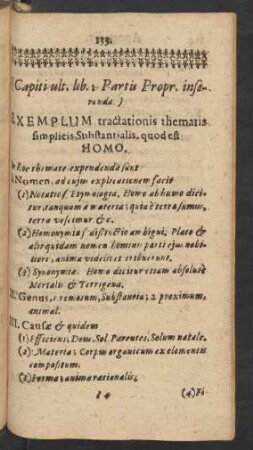 133.
Capiti ult. lib. 2. Partis Propr. inse-
renda. )
EXEMPLUM tractationis thematis
simplicis Substantialis, quod est
HOMO.
In hoc themate expendenda sunt
I. Nomen, ad cujus explicationem facit
(1) Notatio s. Etymologia, Homo ab humo dici-
tur tanquam à materia; quia è terra sumus,
terra vescimur &c.
(2) Homonymia s. distinctio ambigui, Plato &
alii quidam nomen homini parti ejus nobi-
liori, animæ videlicet tribuerunt.
(3) Synonymia. Homo dicitur etiam absolutè
Mortalis & Terrigena.
II. Genus, 1. remotum, Substantia; 2 proximum,
animal.
III. Causæ & quidem
(1) Efficiens, Deus. Sol. Parentes. Solum natale.
(2) Materia; Corpus organicum ex elementis
compositum.
(3) Forma; anima rationalis,
I 4 (4) Fi-